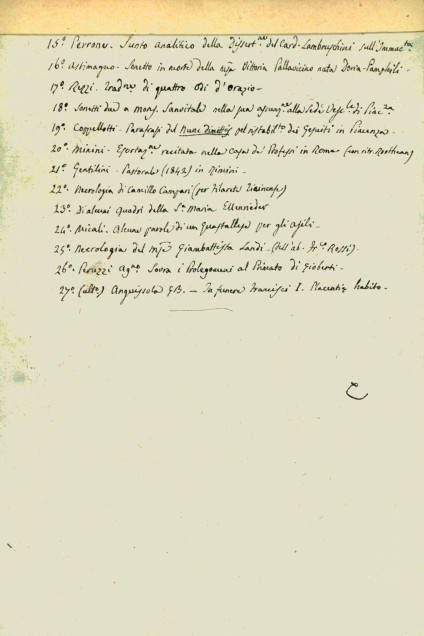 15.° Perrone. Sunto analitico della Dissert.ne del Card. Lambruschini sull'Immac.ta
16.° Astimagno. Sonetto in morte della Vittoria Pallavicino nata Doria-Pamphili -
17.° Rezzi. Traduz.ne di quattro Odi d'Orazio -
18.° Sonetti due a Mons. Sanvitale nella sua assunz.ne alla Sede Vesc.le di Piac.za
19.° Coppellotti. Parafrasi del Nunc dimittis pel ristabil.to dei Gesuiti in Piacenza -
20.° Minini - Esortaz.ne recitata nella Casa de' Professi in Roma (con ritr. Roothaan)
21.° Gentilini - Pastorale (1842) in Rimini -
22.° Necrologia di Camillo Campari (per Filarete Riminese)
23.° Di alcuni Quadri della S.ra Maria Ellenrieder
24.° Micali. Alcune parole di un Guastallese per gli Asili -
25.° Necrologia del Giambattista Landi - (dell'ab. Fr.co Rossi) -
26.° Peruzzi Ag.no Sovra i Prolegomeni al Primato di Gioberti -
27.° (ult.o) Anguissola GB. - In funere Francisci I. Placentiæ habito -